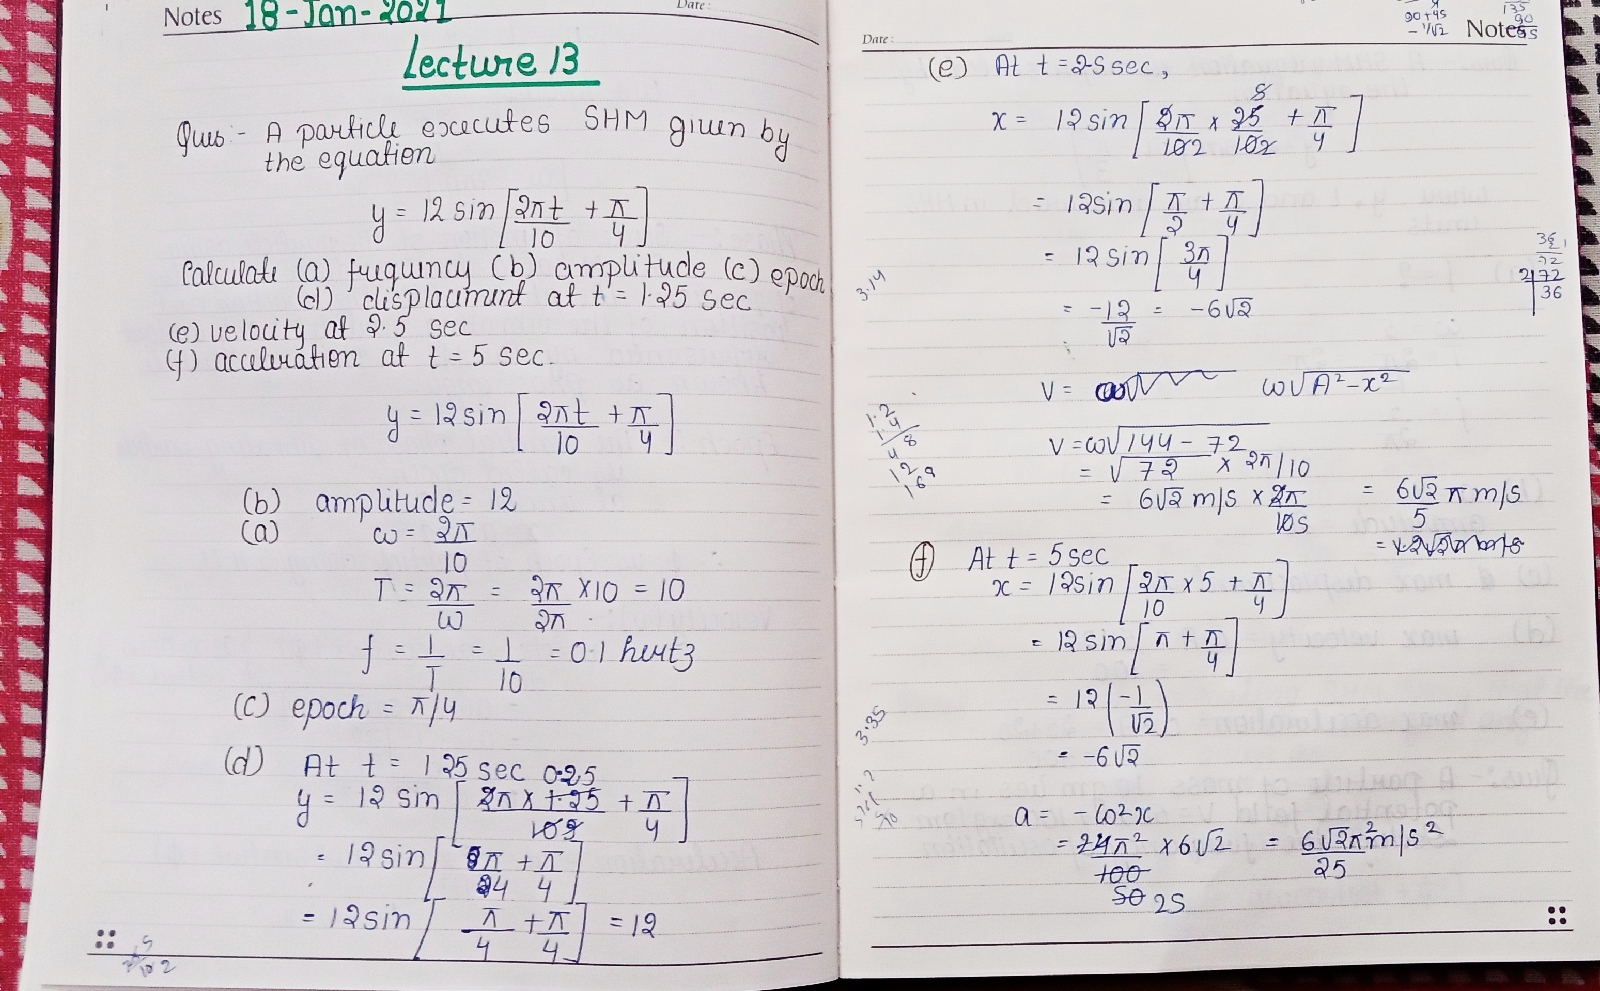 Notes 18-Jan-2021
Date:
Lecture 13
Ques:- A particle executes SHM given by
the equation
y = 12 sin [2πt/10 + π/4]
Calculate (a) frequency (b) amplitude (c) epoch
(d) displacement at t = 1.25 sec
(e) velocity at 2.5 sec
(f) acceleration at t = 5 sec.
y = 12 sin [2πt/10 + π/4]
(b) amplitude = 12
(a) ω = 2π/10
T = 2π/ω = 2π/2π × 10 = 10
f = 1/T = 1/10 = 0.1 hertz
(c) epoch = π/4
(d) At t = 1.25 sec 0.25
y = 12 sin [2π × 1.25/10 + π/4]
= 12 sin [π/4 + π/4]
= 12 sin [π/4 + π/4] = 12
Date:
90+45
-1/√2
135
90
Notes
(e) At t = 2.5 sec,
x = 12 sin [2π/10 × 25/10 + π/4]
= 12 sin [π/2 + π/4]
= 12 sin [3π/4]
= -12/√2 = -6√2
3.14
36
72
2|72
36
V = ω√A²-x²
V = ω√144 - 72
= √72 × 2π/10
= 6√2 m/s × 2π/10s = 6√2/5 π m/s
1.2
1.4
48
12
169
(f) At t = 5 sec
x = 12 sin [2π/10 × 5 + π/4]
= 12 sin [π + π/4]
= 12 (-1/√2)
= -6√2
3.35
a = -ω²x
= 24π²/100 × 6√2 = 6√2π² m/s²/25
50 25